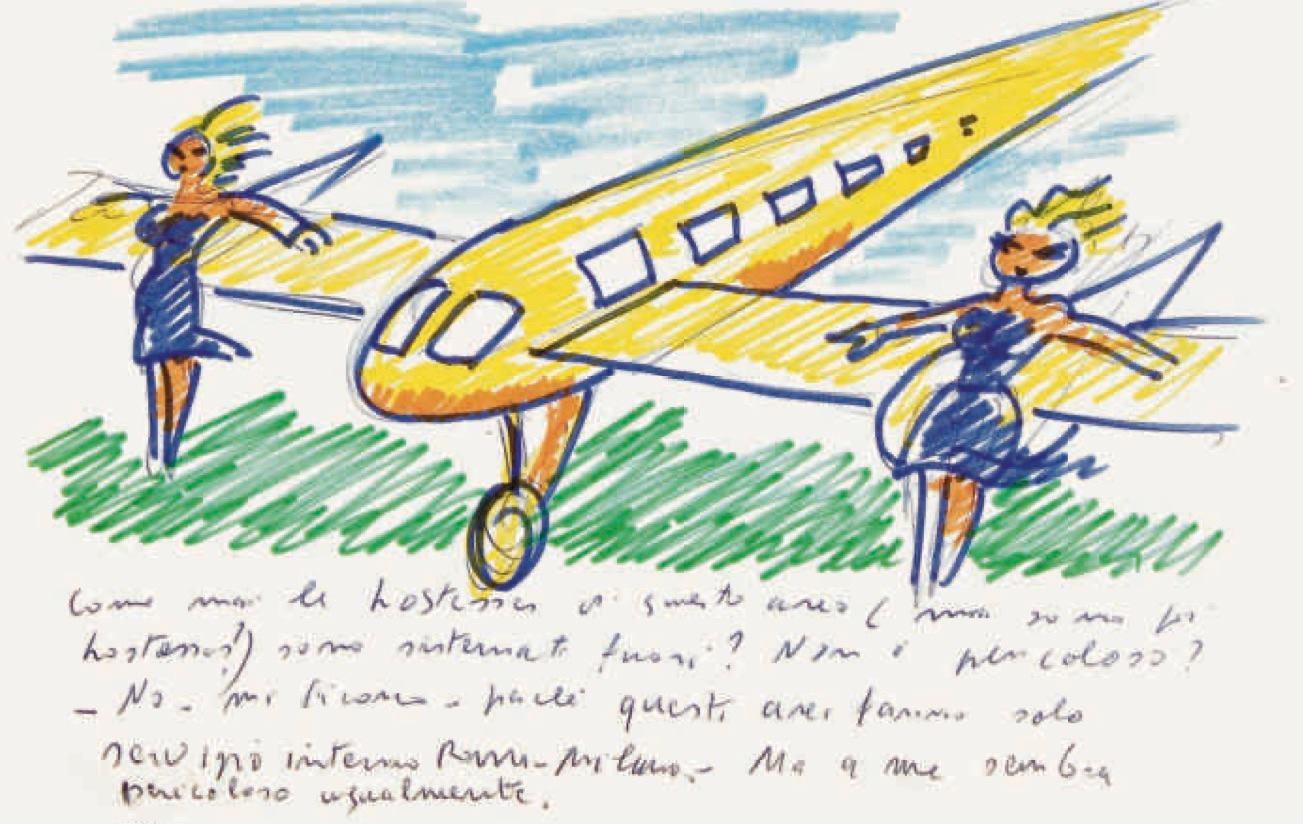 Come mai le hostesses di questo aereo (ma sono poi
hostesses?) sono sistemate fuori? Non è pericoloso?
- No - mi dicono - perché questi aerei fanno solo
servizio interno Roma-Milano - Ma a me sembra
pericoloso ugualmente.